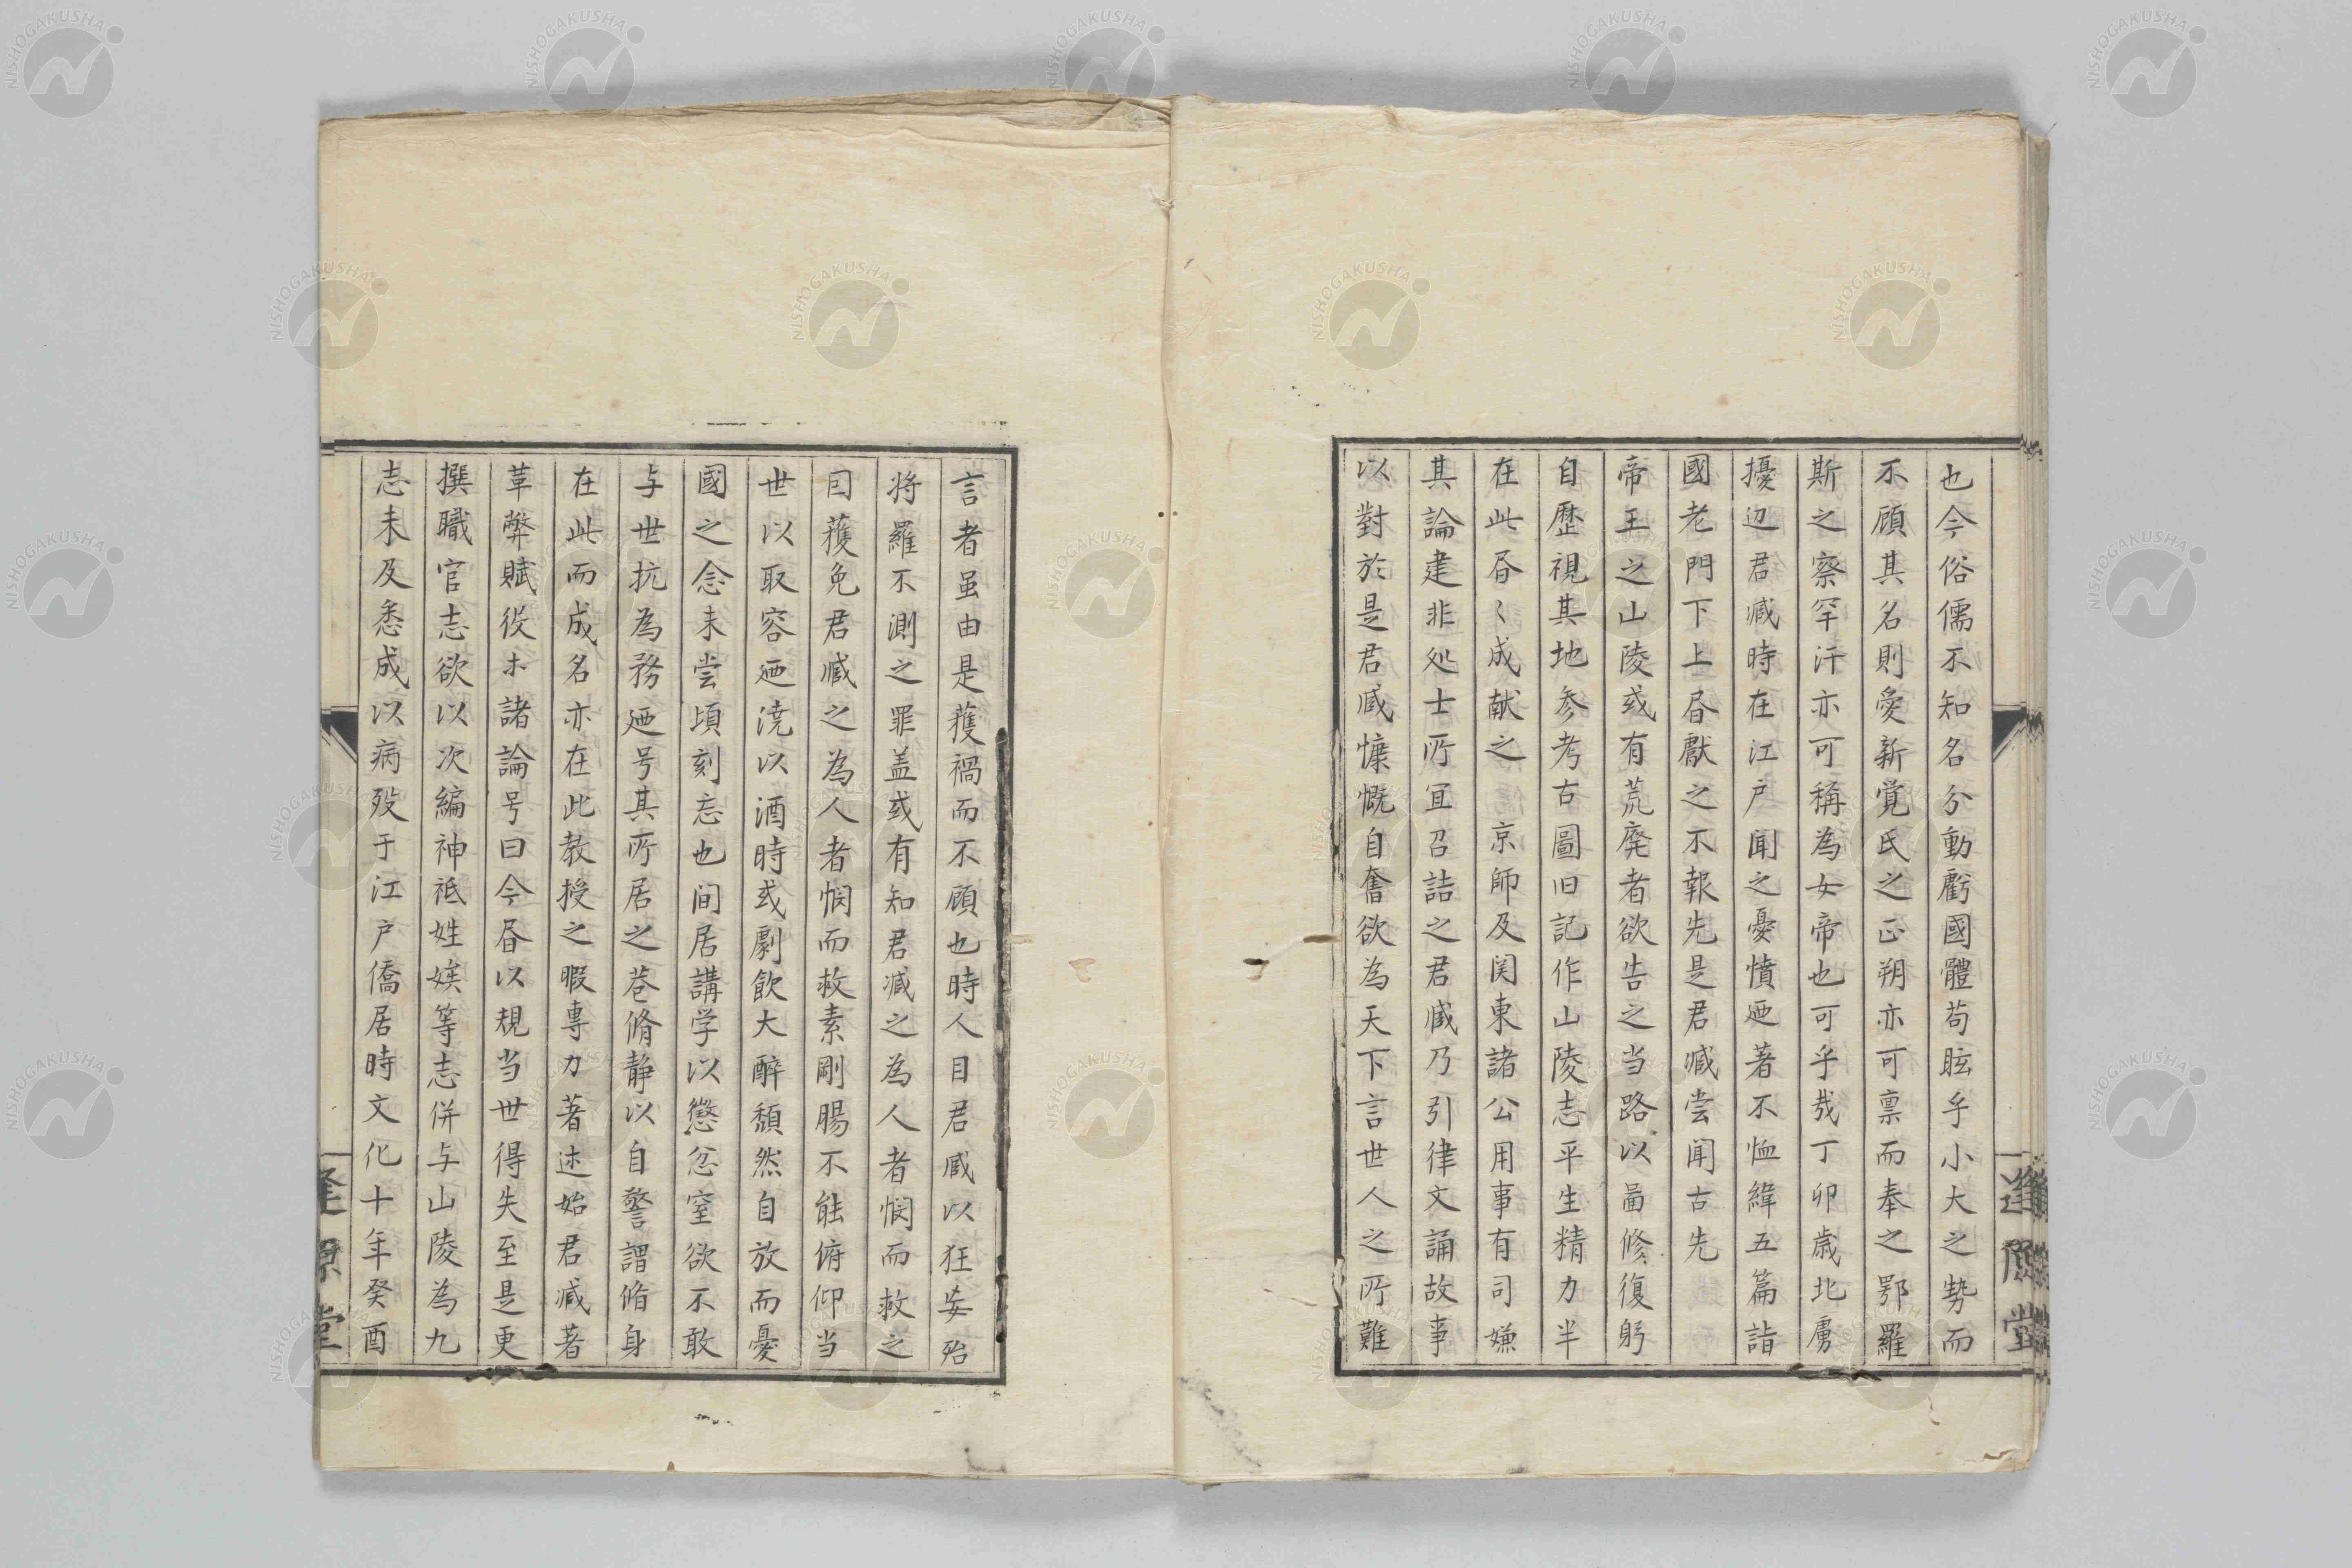 也今俗儒不知名分動虧國體苟眩乎小大之勢而
不顧其名則愛新覚氏之正朔亦可禀而奉之鄂羅
斯之察罕汗亦可稱為女帝也可乎哉丁卯歳北虜
擾辺君臧時在江戸聞之憂憤廼著不恤緯五篇詣
國老門下上昏獻之不報先是君臧尝闻古先
帝王之山陵或有荒廃者欲告之当路以啚修復躬
自歴視其地参考古圖旧記作山陵志平生精力半
在此昏〻成献之 京師及関東諸公用事有司嫌
其論建非処士所宜召詰之君臧乃引律文誦故事
以對於是君臧慷慨自奮欲為天下言世人之所難
言者虽由是蒦禍而不顧也時人目君臧以狂妄殆
将羅不測之罪盖或有知君臧之為人者憫而救之
囙蒦免君臧之為人者憫而救素剛腸不能俯仰当
世以取容廼澆以酒時或劇飲大醉頽然自放而憂
國之念未尝頃刻忘也间居講学以懲忿窒欲不敢
与世抗為務廼号其所居之菴脩静以自警謂脩身
在此而成名亦在此教授之暇專力著述始君臧著
革弊賦役朩諸論号曰今昏以規当世得失至是更
撰職官志欲以次編神祇姓族等志併与山陵為九
志未及悉成以病歿于江戸僑居時文化十年癸酉
逢原堂
逢原堂
NISHOGAKUSHA